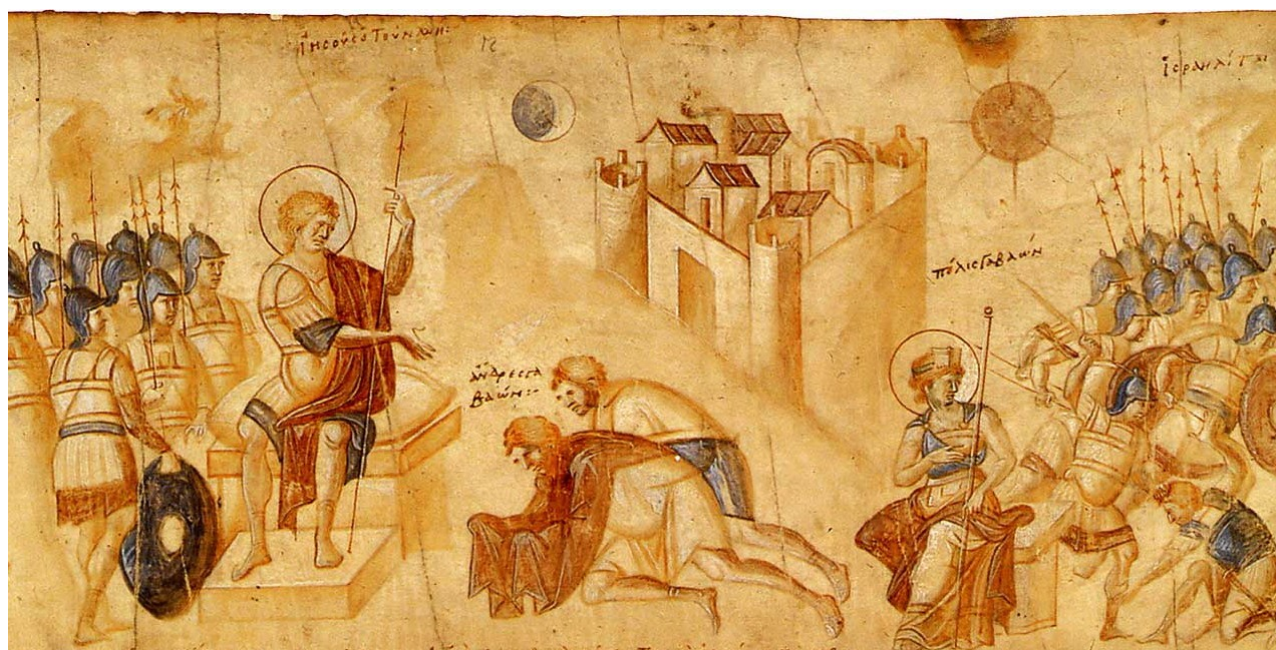 Ἰησοῦς ὁ τοῦ Ναυῆ:
ἰσραηλίται
πόλις Γαβαών
ἄνδρες Γα
βαών:-